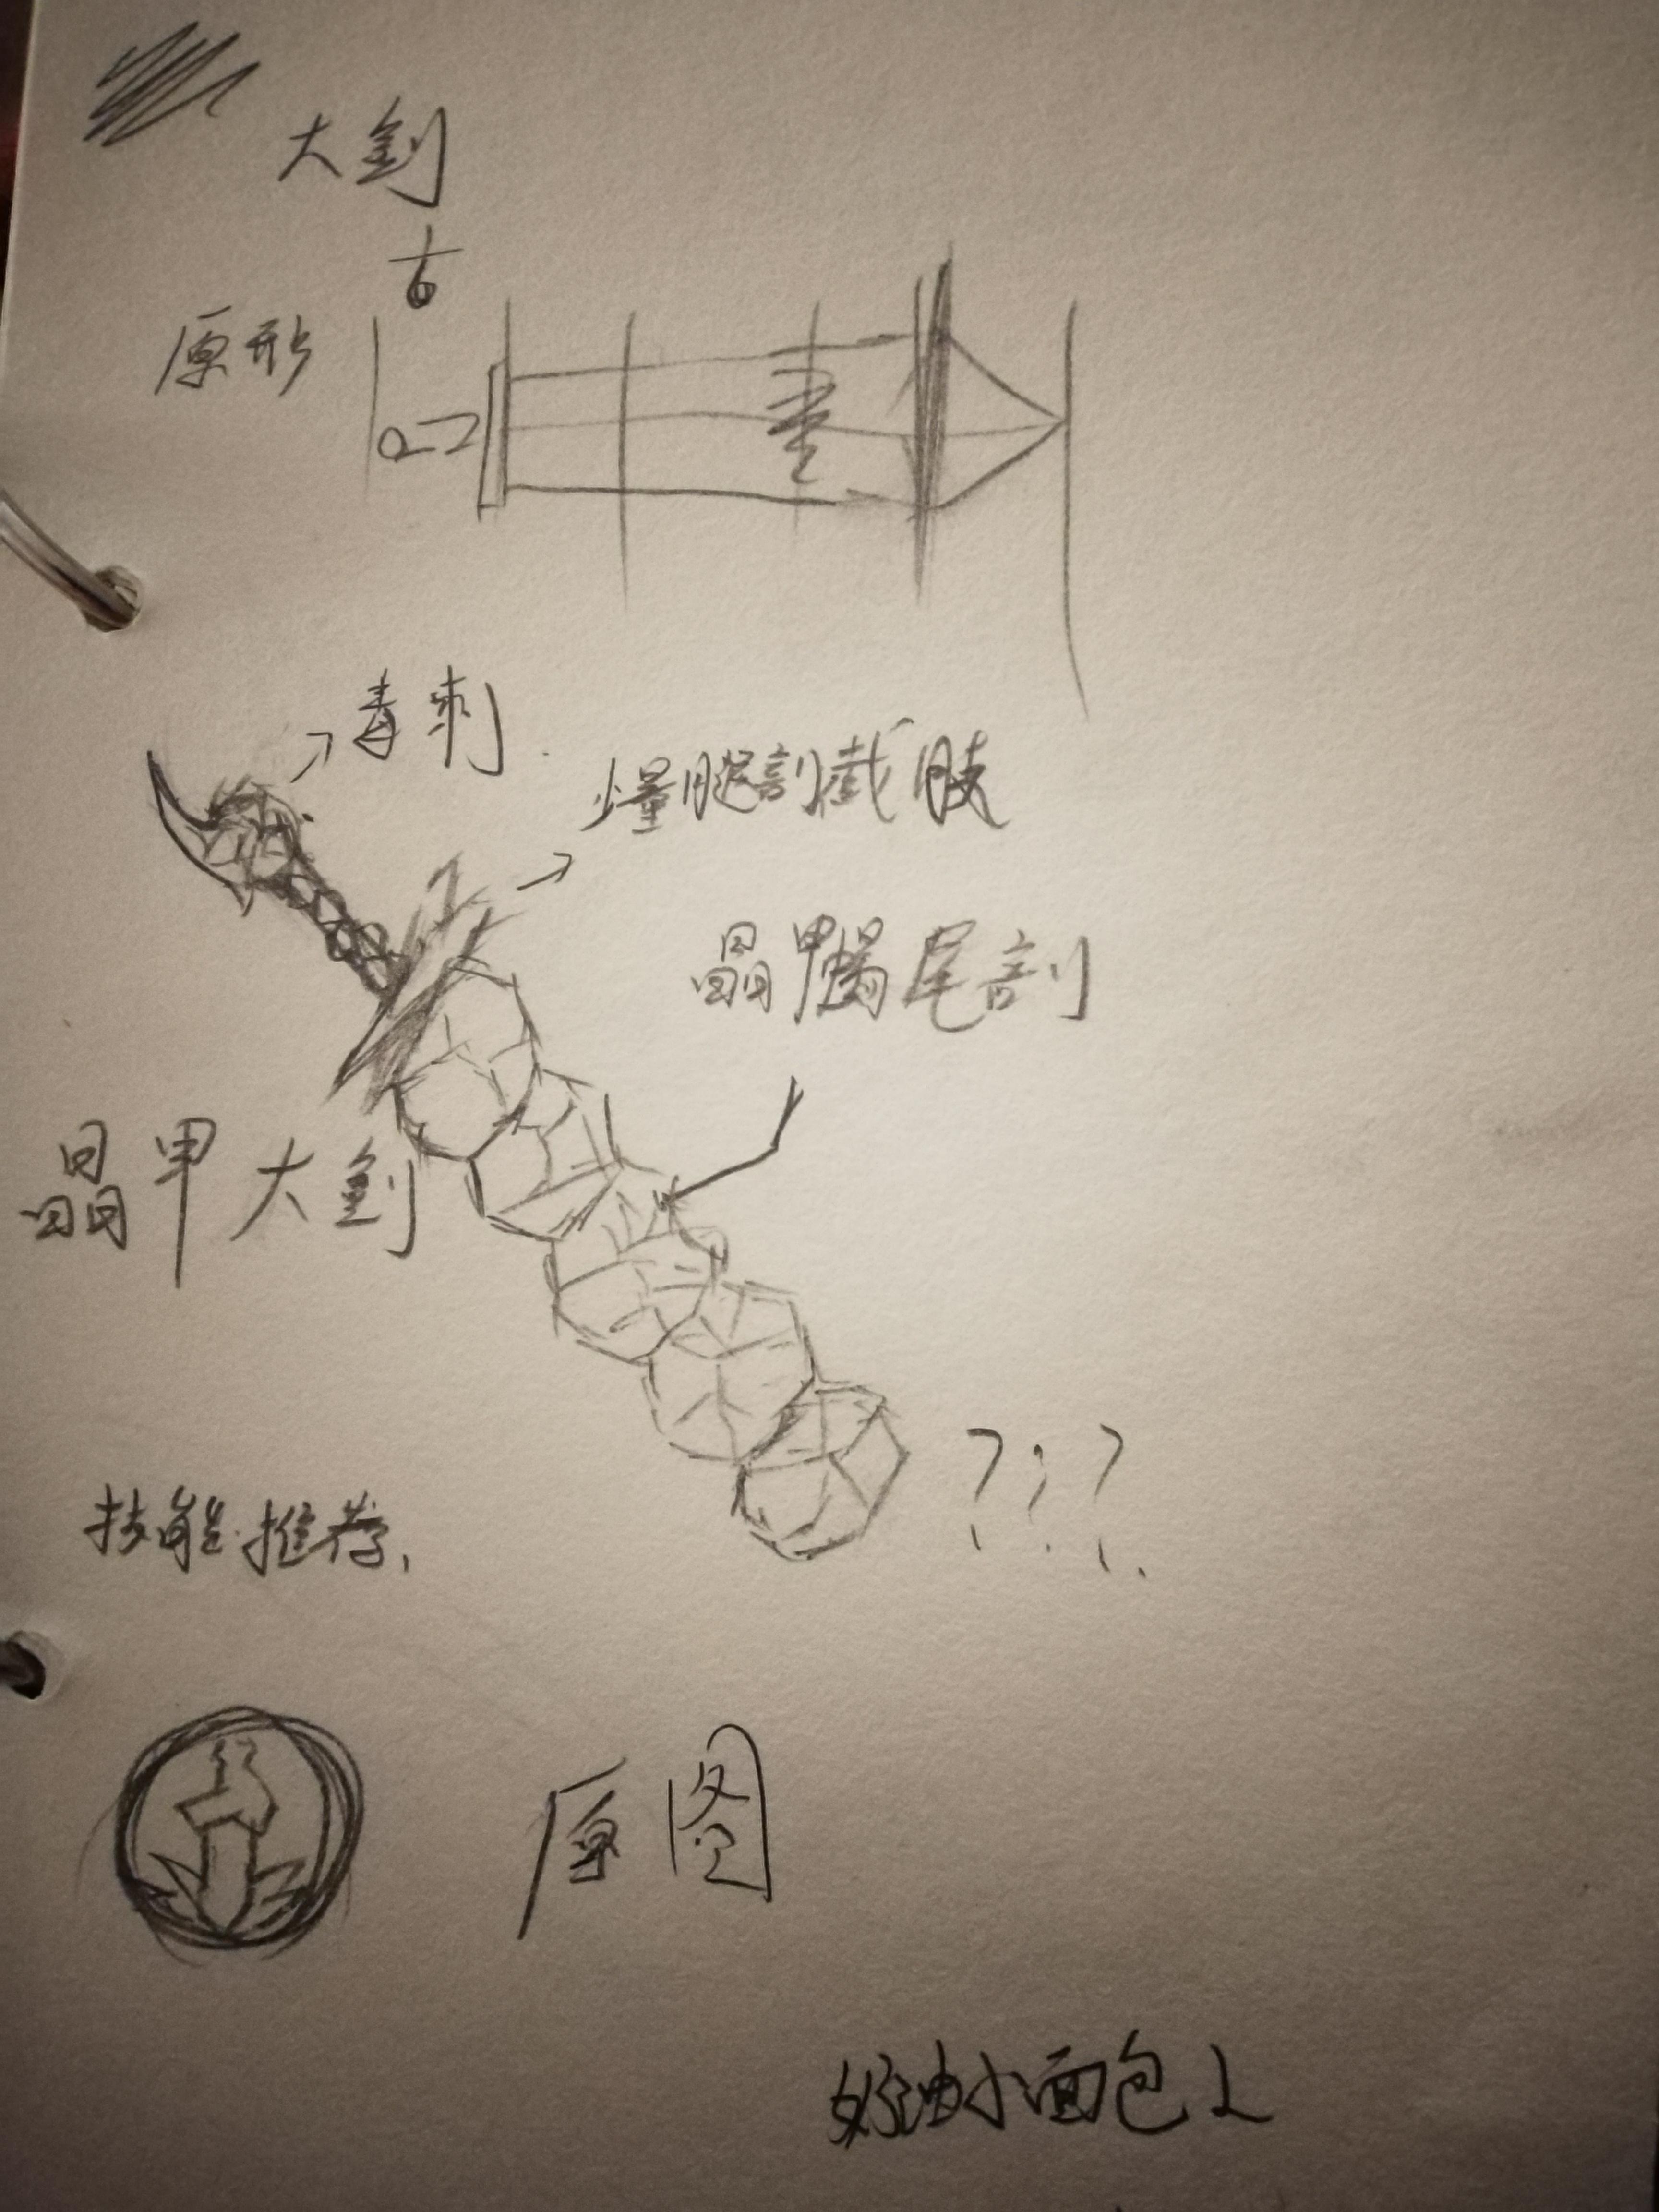 大剑
原形
毒刺
爆腿部截肢
晶甲蝎尾部
晶甲大剑
???
技能推荐、
原图
奶油小面包